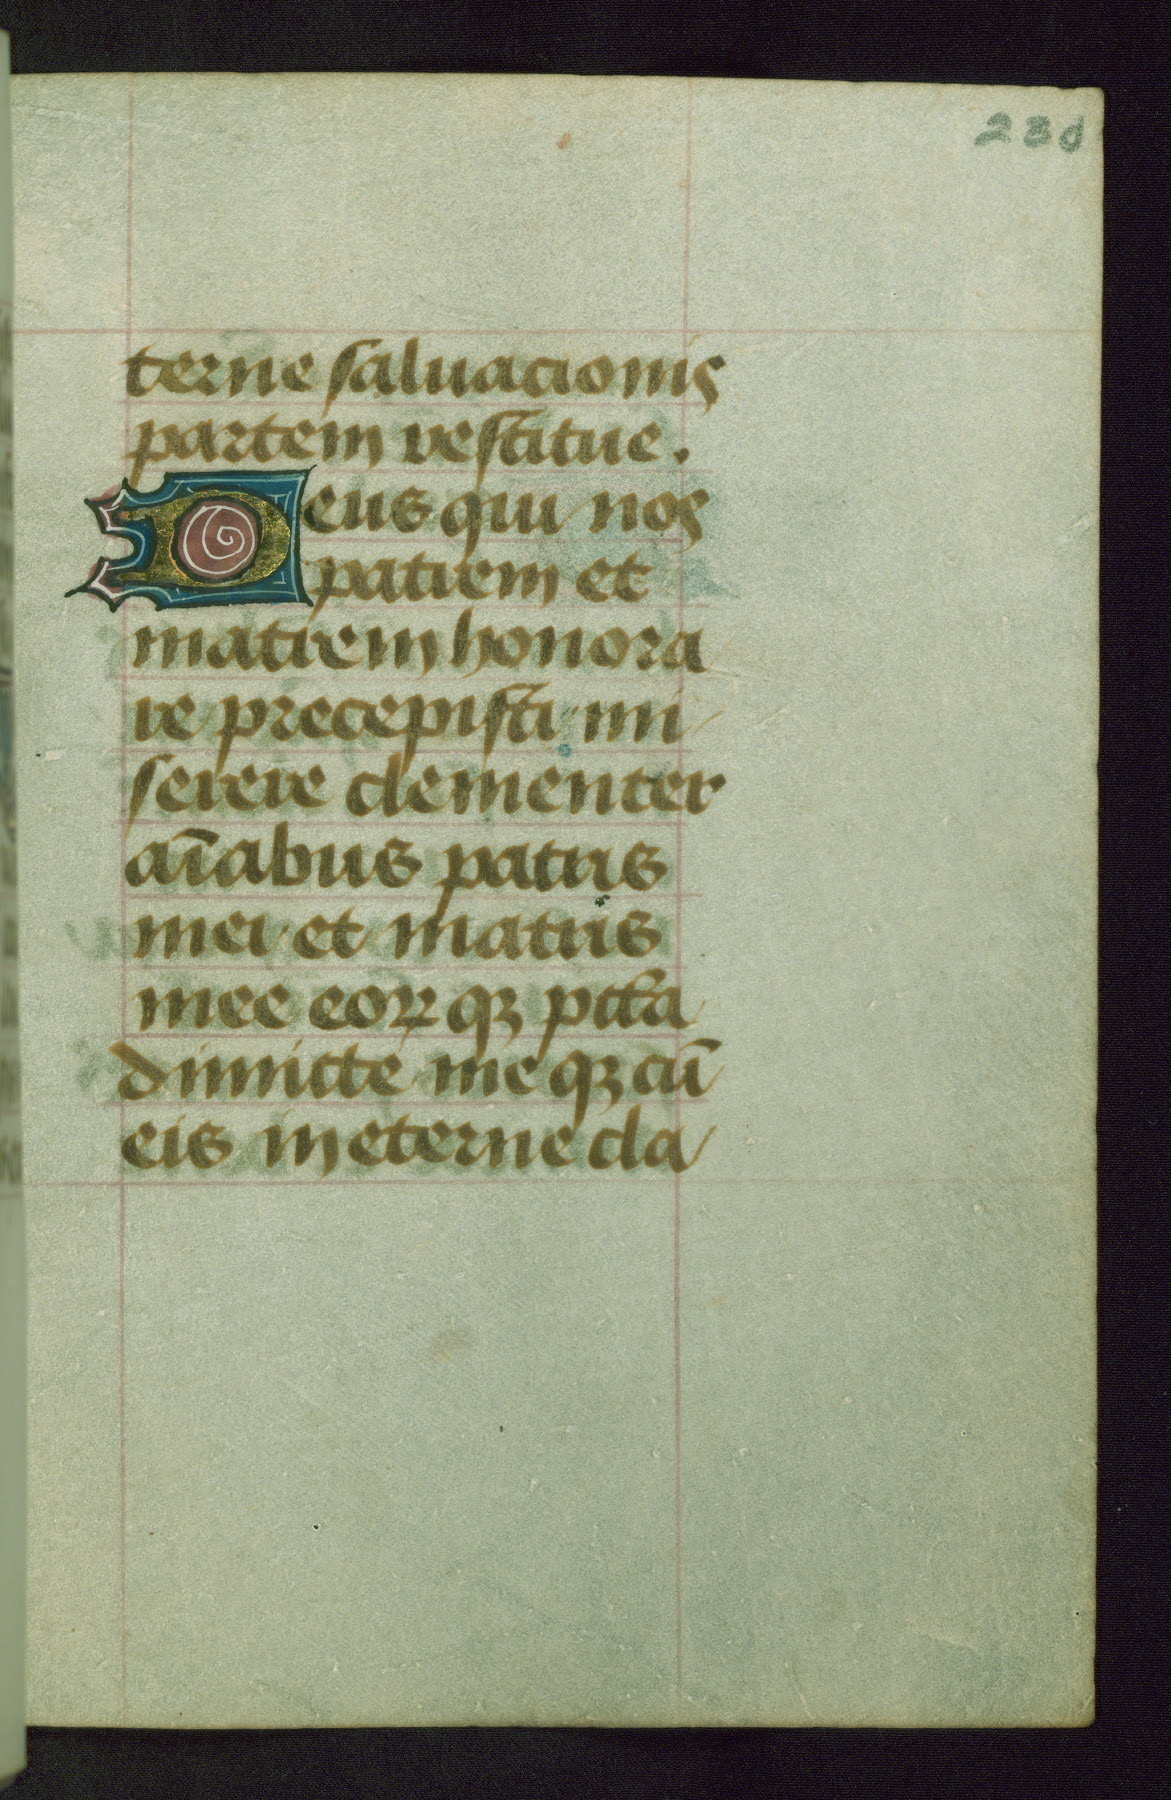 23d
terne saluacionis
partem restitue.
Deus qui nos
patrem et
matrem honora
re precepisti mi
serere clementer
aīabus patris
mei et matris
mee eoꝝ qꝫ pctā
dimitte me qꝫ cū
eis in eterne cla